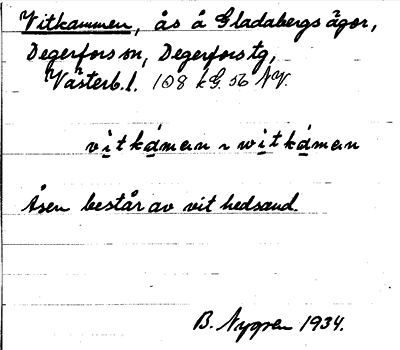 Vitkammen, ås å Gladabergs ägor,
Degerfors sn, Degerfors tg,
Västerb. l. 108 kG. 56 NV.
vitkámȧn ~ witkámȧn
Åsen består av vit hedsand.
B. Nygren 1934.